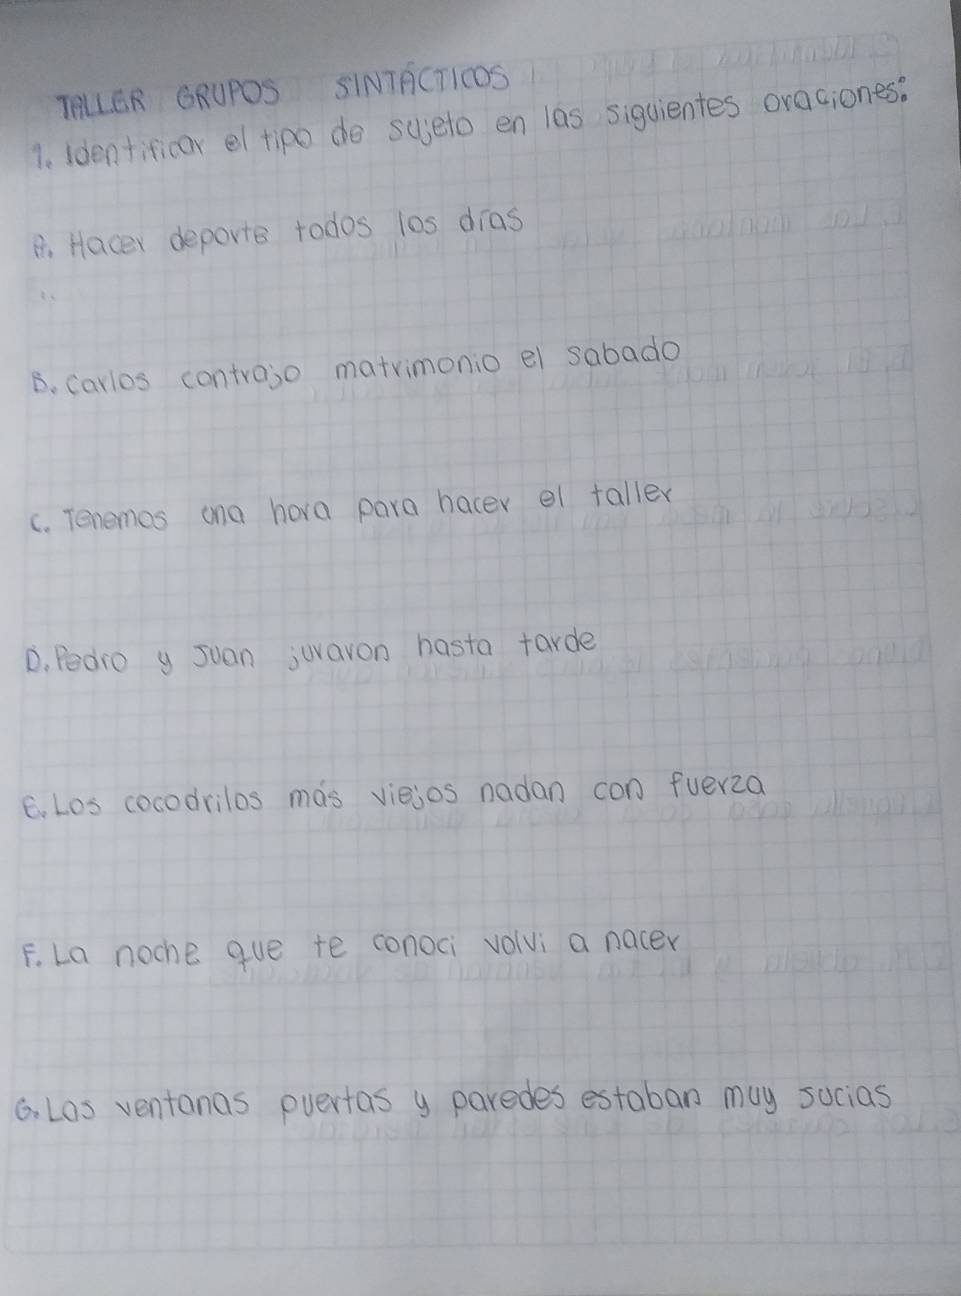 TALLER GRUPOS SINTÁCTICOS
1. Identificar el tipo de sujeto en las siguientes oraciones:
A. Hacer deporte todos los días
B. Carlos contrajo matrimonio el sabado
C. Tenemos una hora para hacer el taller
D. Pedro y Juan juraron hasta tarde
E. Los cocodrilos más viejos nadan con fuerza
F. La noche que te conoci volvi a nacer
G. Las ventanas puertas y paredes estaban muy sucias